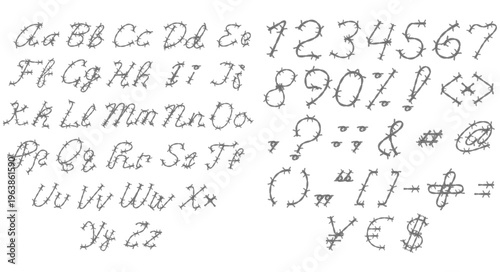 Aa Bb Cc Dd Ee
Ff Gg Hh Ii Jj
Kk Ll Mm Nn Oo
Pp Qq Rr Ss Tt
Uu Vv Ww Xx
Yy Zz
1234567
890%! <>
.?:;& #@
(),"[]-+=
¥€$
Adobe Stock | #1963861590